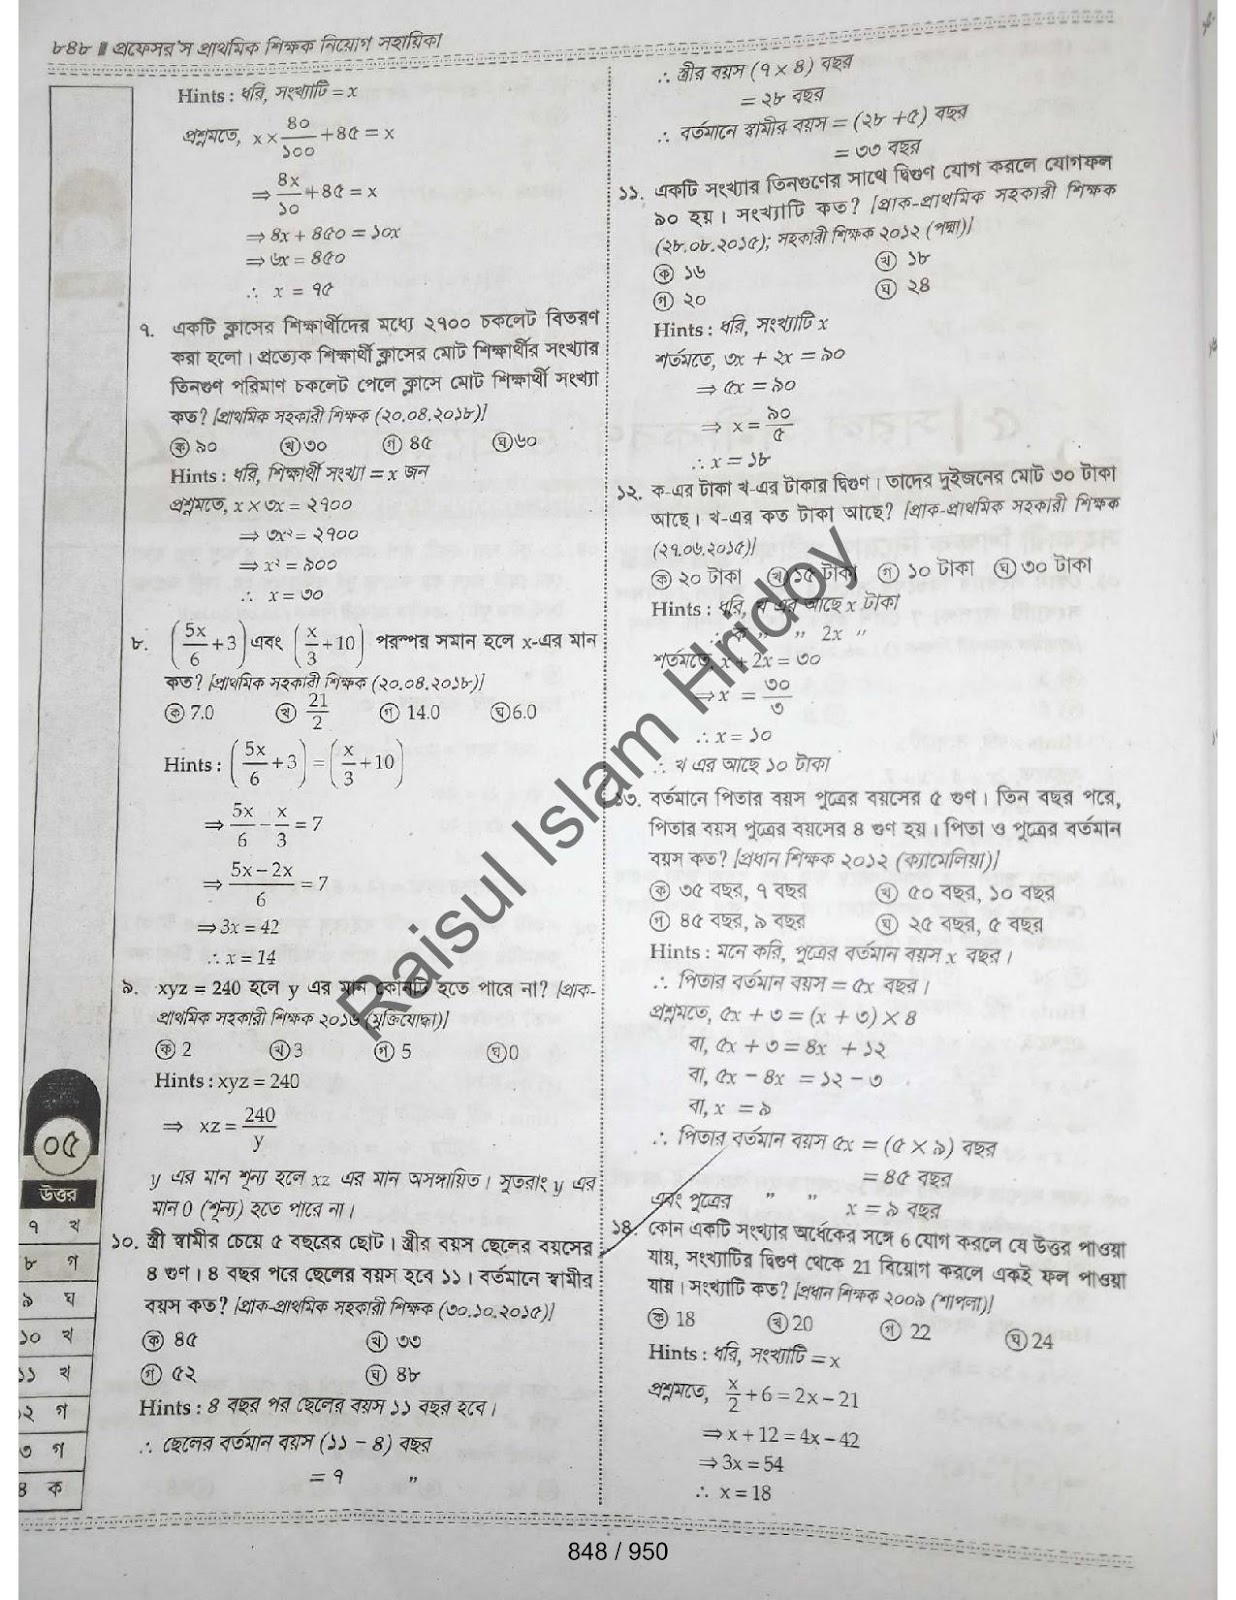 ৮৪৮ ॥ প্রফেসর'স প্রাথমিক শিক্ষক নিয়োগ সহায়িকা
Hints : ধরি, সংখ্যাটি = x
প্রশ্নমতে, x × ৪০/১০০ + ৪৫ = x
⇒ ৪x/১০ + ৪৫ = x
⇒ ৪x + ৪৫০ = ১০x
⇒ ৬x = ৪৫০
∴ x = ৭৫
৭. একটি ক্লাসের শিক্ষার্থীদের মধ্যে ২৭০০ চকলেট বিতরণ
করা হলো। প্রত্যেক শিক্ষার্থী ক্লাসের মোট শিক্ষার্থীর সংখ্যার
তিনগুণ পরিমাণ চকলেট পেলে ক্লাসে মোট শিক্ষার্থী সংখ্যা
কত? [প্রাথমিক সহকারী শিক্ষক (২০.০৪.২০১৮)]
ক ৯০ খ ৩০ গ ৪৫ ঘ ৬০
Hints : ধরি, শিক্ষার্থী সংখ্যা = x জন
প্রশ্নমতে, x × ৩x = ২৭০০
⇒ ৩x² = ২৭০০
⇒ x² = ৯০০
∴ x = ৩০
৮. (5x/6 + 3) এবং (x/3 + 10) পরস্পর সমান হলে x-এর মান
কত? [প্রাথমিক সহকারী শিক্ষক (২০.০৪.২০১৮)]
ক 7.0 খ 21/2 গ 14.0 ঘ 6.0
Hints : (5x/6 + 3) = (x/3 + 10)
⇒ 5x/6 - x/3 = 7
⇒ (5x – 2x)/6 = 7
⇒ 3x = 42
∴ x = 14
৯. xyz = 240 হলে y এর মান কোনটি হতে পারে না? [প্রাক-
প্রাথমিক সহকারী শিক্ষক ২০১৬ (মুক্তিযোদ্ধা)]
ক 2 খ 3 গ 5 ঘ 0
Hints : xyz = 240
⇒ xz = 240/y
y এর মান শূন্য হলে xz এর মান অসঙ্গায়িত। সুতরাং y এর
মান 0 (শূন্য) হতে পারে না।
১০. স্ত্রী স্বামীর চেয়ে ৫ বছরের ছোট। স্ত্রীর বয়স ছেলের বয়সের
৪ গুণ। ৪ বছর পরে ছেলের বয়স হবে ১১। বর্তমানে স্বামীর
বয়স কত? [প্রাক-প্রাথমিক সহকারী শিক্ষক (৩০.১০.২০১৫)]
ক ৪৫ খ ৩৩
গ ৫২ ঘ ৪৮
Hints : ৪ বছর পর ছেলের বয়স ১১ বছর হবে।
∴ ছেলের বর্তমান বয়স (১১ – ৪) বছর
= ৭ "
∴ স্ত্রীর বয়স (৭ × ৪) বছর
= ২৮ বছর
∴ বর্তমানে স্বামীর বয়স = (২৮ + ৫) বছর
= ৩৩ বছর
১১. একটি সংখ্যার তিনগুণের সাথে দ্বিগুণ যোগ করলে যোগফল
৯০ হয়। সংখ্যাটি কত? [প্রাক-প্রাথমিক সহকারী শিক্ষক
(২৮.০৮.২০১৫); সহকারী শিক্ষক ২০১২ (পদ্মা)]
ক ১৬ খ ১৮
গ ২০ ঘ ২৪
Hints : ধরি, সংখ্যাটি x
শর্তমতে, ৩x + ২x = ৯০
⇒ ৫x = ৯০
⇒ x = ৯০/৫
∴ x = ১৮
১২. ক-এর টাকা খ-এর টাকার দ্বিগুণ। তাদের দুইজনের মোট ৩০ টাকা
আছে। খ-এর কত টাকা আছে? [প্রাক-প্রাথমিক সহকারী শিক্ষক
(২৭.০৬.২০১৫)]
ক ২০ টাকা খ ১৫ টাকা গ ১০ টাকা ঘ ৩০ টাকা
Hints : ধরি, খ এর আছে x টাকা
∴ ক " " 2x "
শর্তমতে, x + 2x = ৩০
⇒ x = ৩০/৩
∴ x = ১০
∴ খ এর আছে ১০ টাকা
১৩. বর্তমানে পিতার বয়স পুত্রের বয়সের ৫ গুণ। তিন বছর পরে,
পিতার বয়স পুত্রের বয়সের ৪ গুণ হয়। পিতা ও পুত্রের বর্তমান
বয়স কত? [প্রধান শিক্ষক ২০১২ (ক্যামেলিয়া)]
ক ৩৫ বছর, ৭ বছর খ ৫০ বছর, ১০ বছর
গ ৪৫ বছর, ৯ বছর ঘ ২৫ বছর, ৫ বছর
Hints : মনে করি, পুত্রের বর্তমান বয়স x বছর।
∴ পিতার বর্তমান বয়স = ৫x বছর।
প্রশ্নমতে, ৫x + ৩ = (x + ৩) × ৪
বা, ৫x + ৩ = ৪x + ১২
বা, ৫x – ৪x = ১২ – ৩
বা, x = ৯
∴ পিতার বর্তমান বয়স ৫x = (৫ × ৯) বছর
= ৪৫ বছর
এবং পুত্রের " " x = ৯ বছর
১৪. কোন একটি সংখ্যার অর্ধেকের সঙ্গে 6 যোগ করলে যে উত্তর পাওয়া
যায়, সংখ্যাটির দ্বিগুণ থেকে 21 বিয়োগ করলে একই ফল পাওয়া
যায়। সংখ্যাটি কত? [প্রধান শিক্ষক ২০০৯ (শাপলা)]
ক 18 খ 20 গ 22 ঘ 24
Hints : ধরি, সংখ্যাটি = x
প্রশ্নমতে, x/2 + 6 = 2x – 21
⇒ x + 12 = 4x – 42
⇒ 3x = 54
∴ x = 18
০৫
উত্তর
৭ খ
৮ গ
৯ ঘ
১০ খ
১১ খ
২ গ
৩ গ
৪ ক
Raisul Islam Hridoy
848 / 950